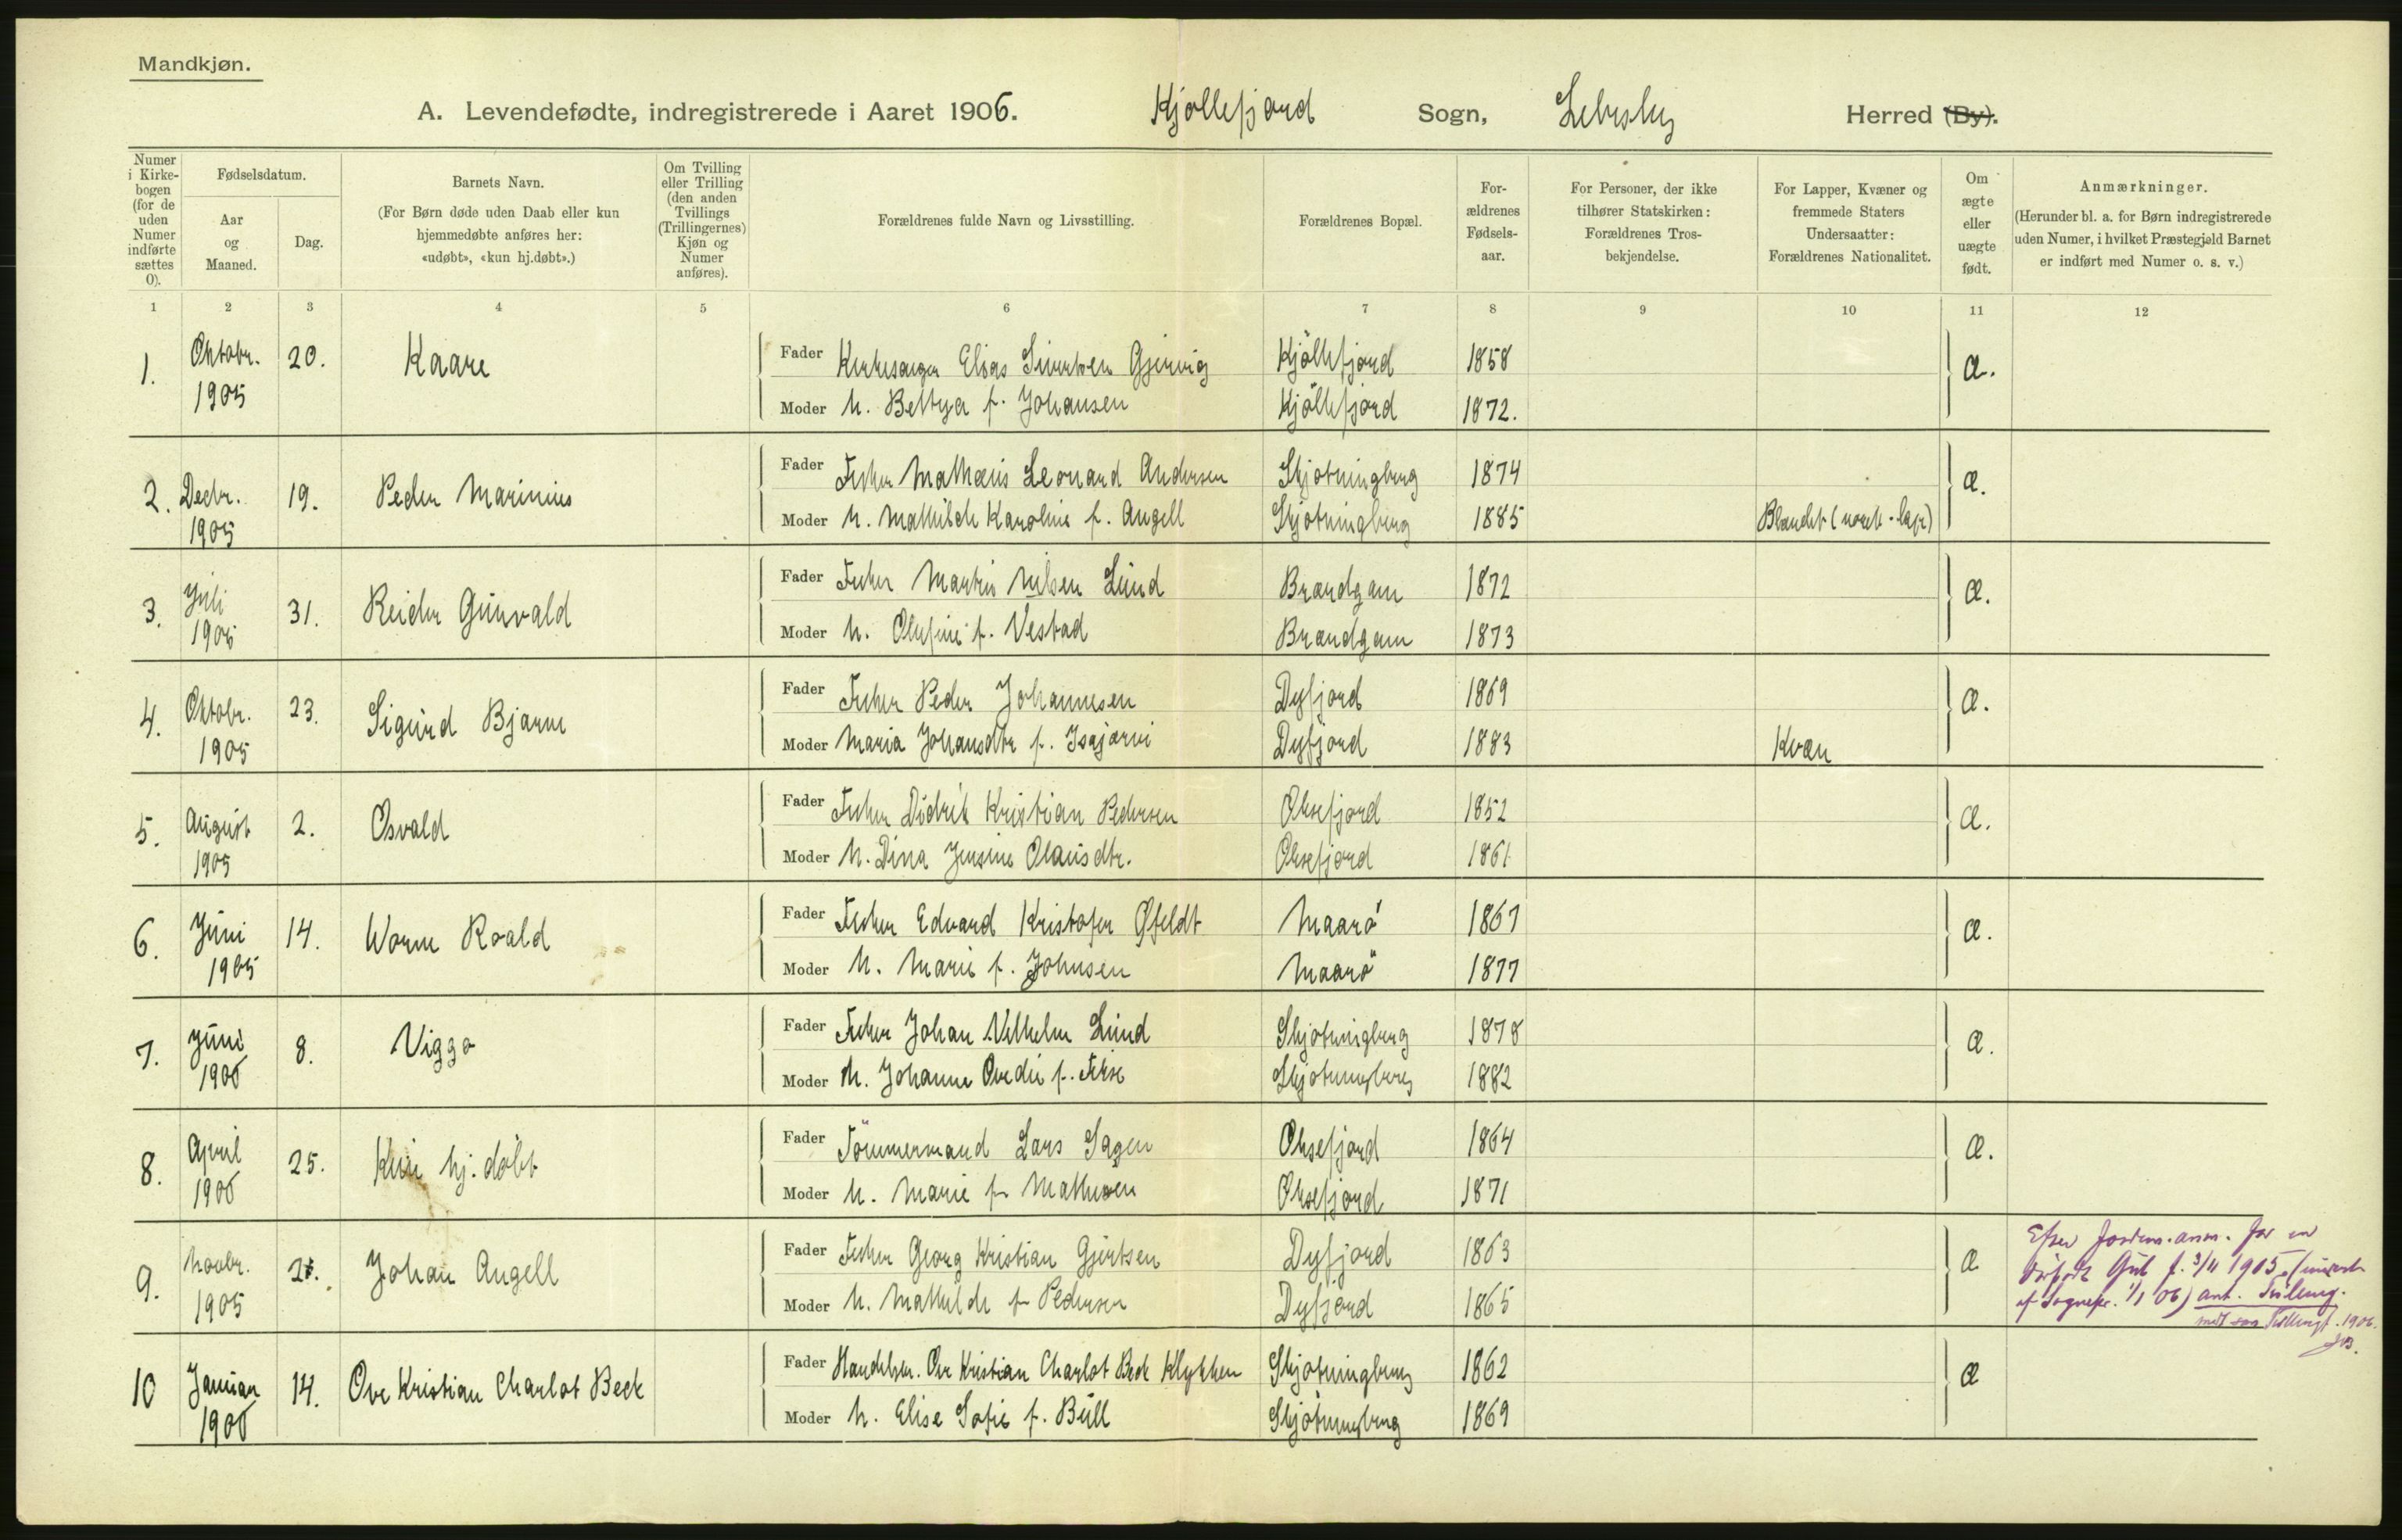 Mandkjøn.
A. Levendefødte, indregistrerede i Aaret 1906. Kjøllefjord Sogn, Lebesby Herred (By).
Numer i Kirke-bogen (for de uden Numer indførte sættes 0).
Fødselsdatum.
Aar og Maaned.
Dag.
Barnets Navn.
(For Børn døde uden Daab eller kun
hjemmedøbte anføres her:
«udøbt», «kun hj.døbt».)
Om Tvilling
eller Trilling
(den anden
Tvillings
(Trillingernes)
Kjøn og
Numer
anføres).
Forældrenes fulde Navn og Livsstilling.
Forældrenes Bopæl.
For-
ældrenes
Fødsels-
aar.
For Personer, der ikke
tilhører Statskirken:
Forældrenes Tros-
bekjendelse.
For Lapper, Kvæner og
fremmede Staters
Undersaatter:
Forældrenes Nationalitet.
Om
ægte
eller
uægte
født.
Anmærkninger.
(Herunder bl. a. for Børn indregistrerede
uden Numer, i hvilket Præstegjeld Barnet
er indført med Numer o. s. v.)
1 2 3 4 5 6 7 8 9 10 11 12
1. Oktobr. 1905 20. Kaare
Fader Kirkesanger Elias Sivertsen Gjervig Kjöllefjord 1858 Æ.
Moder h. Bettya f. Johansen Kjöllefjord 1872.
2. Decbr. 1905 19. Peder Marinius
Fader Fisker Mathæus Leonard Andersen Skjøtningberg 1874 Æ.
Moder h. Mathilde Karoline f. Angell Skjøtningberg 1885 Blandet (norsk-lap)
3. Juli 1905 31. Reidar Gunvald
Fader Fisker Martin Nilsen Lund Brandgam 1872 Æ.
Moder h. Olufine f. Vestad Brandgam 1873
4. Oktobr. 1905 23. Sigurd Bjarne
Fader Fisker Peder Johannesen Dyfjord 1869 Æ.
Moder Maria Johansdtr f. Isajærvi Dyfjord 1883 Kvæn
5. August 1905 2. Osvald
Fader Fisker Didrik Kristian Pedersen Oksefjord 1852 Æ.
Moder h. Dina Jensine Olausdtr. Oksefjord 1861
6. Juni 1905 14. Worm Roald
Fader Fisker Edvard Kristofer Øfeldt Maarö 1867 Æ.
Moder h. Marie f. Johnsen Maarö 1877
7. Juni 1906 8. Viggo
Fader Fisker Johan Vilhelm Lund Skjøtningberg 1878 Æ.
Moder h. Johanne Ovedie f. Friis Skjøtningberg 1882
8. April 1906 25. Kun hj. döbt
Fader Tömmermand Lars Sagen Oksefjord 1864 Æ.
Moder h. Marie f. Mathisen Oksefjord 1871
9. Novbr. 1905 Johan Angell
Fader Fisker Georg Kristian Gjertsen Dyfjord 1863 Æ
Moder h. Mathilde f. Pedersen Dyfjord 1865
Efter Jordm. anm. for en
dødfødt Gut f. 3/11 1905
af Sognepr. 1/1 06) ant. Tvilling.
1906.
10 Januar 1906 14. Ove Kristian Charlot Beck
Fader Handelsm. Ove Kristian Charlot Beck Klykken Skjøtningberg 1862 Æ
Moder h. Elise Sofie f. Bull Skjøtningberg 1869